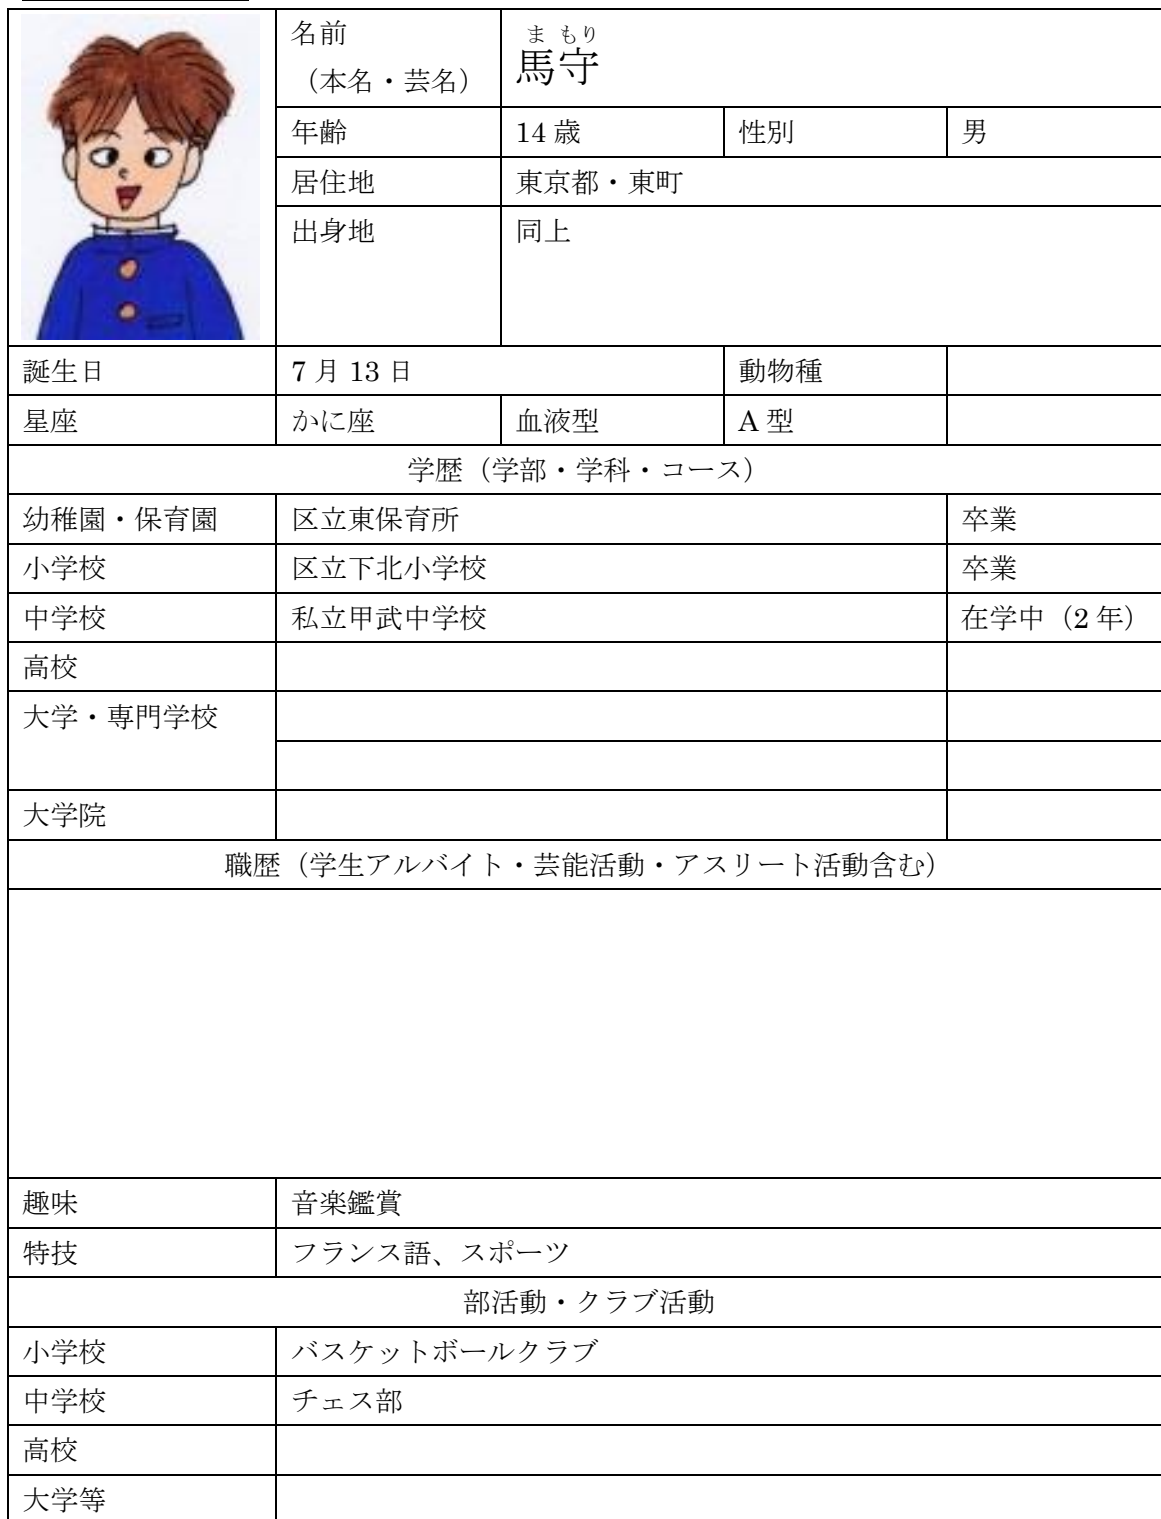 名前
（本名・芸名）
ま もり
馬守
年齢 14 歳 性別 男
居住地 東京都・東町
出身地 同上
誕生日 7 月 13 日 動物種
星座 かに座 血液型 A 型
学歴（学部・学科・コース）
幼稚園・保育園 区立東保育所 卒業
小学校 区立下北小学校 卒業
中学校 私立甲武中学校 在学中（2 年）
高校
大学・専門学校
大学院
職歴（学生アルバイト・芸能活動・アスリート活動含む）
趣味 音楽鑑賞
特技 フランス語、スポーツ
部活動・クラブ活動
小学校 バスケットボールクラブ
中学校 チェス部
高校
大学等